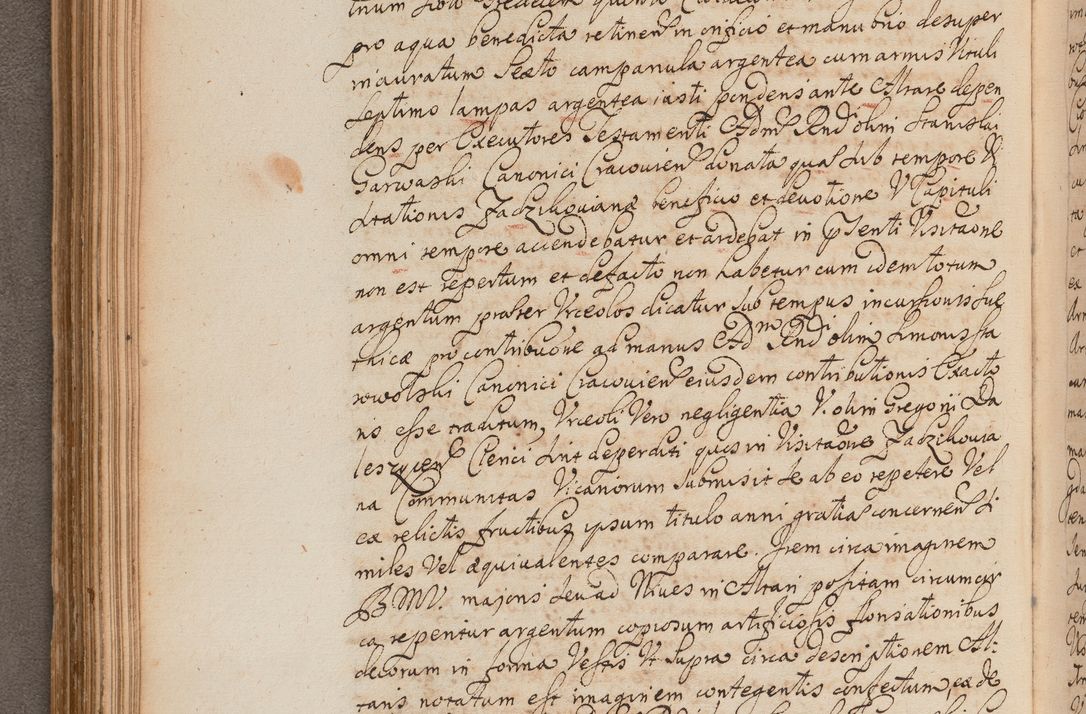 pro aqua benedicta retinen in orificio et manubrio desuper
inauratum Sexto campanula argentea cum armis Vituli
Septimo lampas argentea iusti ponderis ante Altare depen
dens per Executores Testamenti Adm Rnd olim Stanislai
Garwaski Canonici Cracovien donata quæ sub tempore Vi
sitationis Zadzikovianæ beneficio et devotione V Capituli
omni tempore accendebatur et ardebat in pnti Visitaõne
non est repertum et defacto non habetur cum idem totum
argentum præter Vrceolos dicatur sub tempus incursionis Sue
thicæ pro contribuõne ad manus Adm Rndi olim Simonis Sta
rowolski Canonici Cracovien eiusdem contributionis Exacto
ris esse traditum, Vrceoli Vero negligentia V. olim Gregorii Da
leszycen Clerici sint deperditi quos in Visitaõne Zadzikovia
na Communitas Vicariorum submisit se ab eo repetere Vel
ex relictis fructibus ipsum titulo anni gratiæ concernen Si
miles Vel æquivalentes comparare. Item circa imaginem
B. M. V. majoris seu ad Nives in Altari positam circumcir
ca reperitur argentum copiosum artificiosis florisationibus
decorum in forma Vestis Vt supra circa descriptionem Al:
taris notatum est imaginem contegentis confectum, ex de